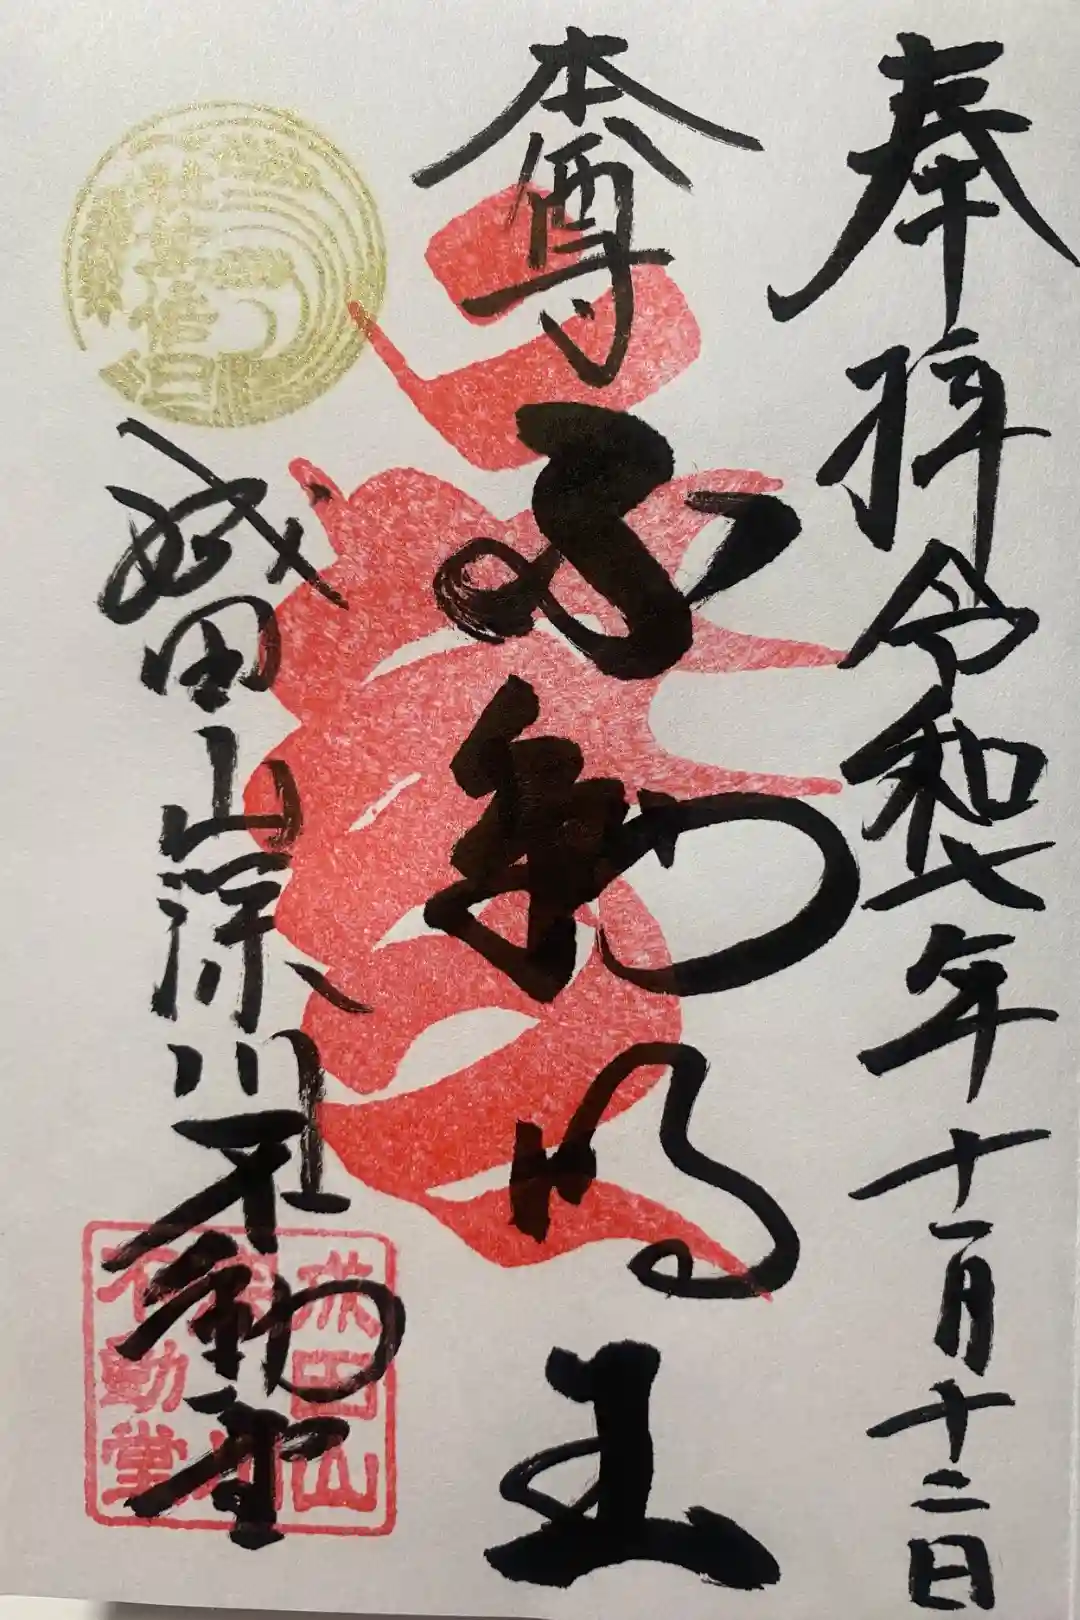 奉拝令和七年十一月十二日
本尊不動明王
成田山深川不動堂
成田山
不動堂